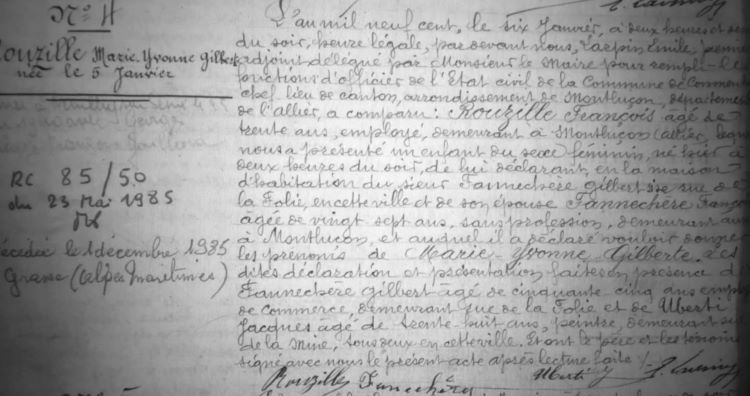 N° 4
Rouzille Marie Yvonne Gilberte
née le 5 Janvier
RC 85/50
du 23 Mai 1985
Décédée le 1 décembre 1985
Grasse (Alpes Maritimes)
L'an mil neuf cent, le six Janvier, à deux heures et
du soir, heure légale, par devant nous, Émile,
adjoint délégué par Monsieur le Maire pour remplir les
fonctions d'officier de l'État civil de la Commune de
chef lieu de canton, arrondissement de Montluçon, département
de l'Allier, a comparu: Rouzille François âgé de
trente ans, employé, demeurant à Montluçon (Allier,
nous a présenté un enfant du sexe féminin, né hier à
deux heures du soir, de lui déclarant, en la maison
d'habitation du sieur Fannechère Gilbert sise rue de
la Folie, en cette ville et de son épouse Fannechère
âgée de vingt sept ans, sans profession, demeurant
à Montluçon, et auquel il a déclaré vouloir donner
les prénoms de Marie-Yvonne Gilberte. Les
dites déclaration et présentation faites en présence de
Fannechère Gilbert âgé de cinquante-cinq ans
de commerce, demeurant rue de la Folie et de Uberti
Jacques âgé de trente-huit ans, peintre, demeurant
de la Mine, tous deux en cette ville. Et ont le père et les témoins
signé avec nous le présent acte après lecture faite ./.
Rouzille Fannechère Uberti J.